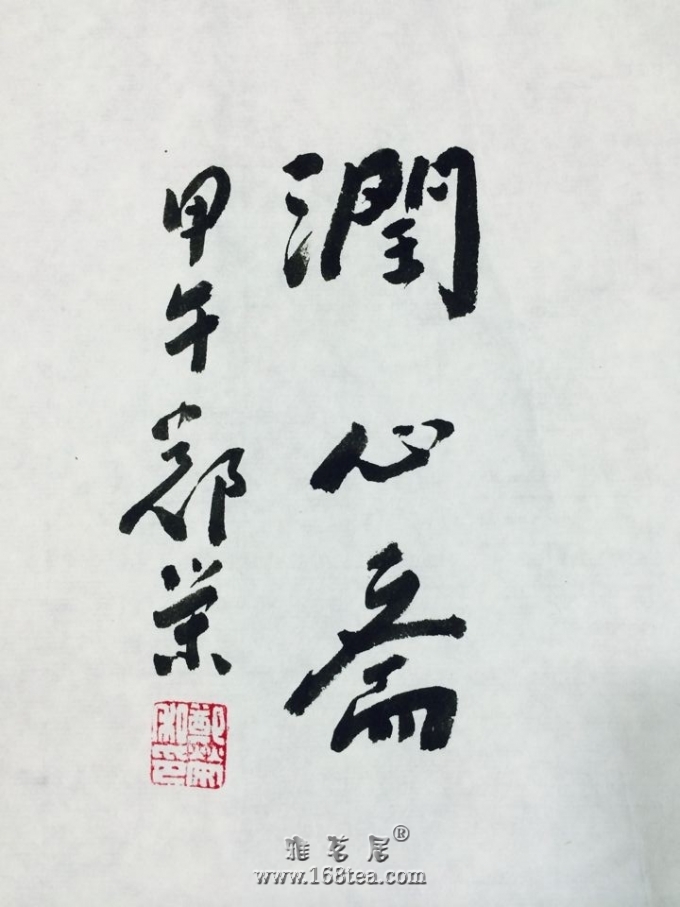 潤心斋
甲午郑荣
雅茗居®
www.168tea.com